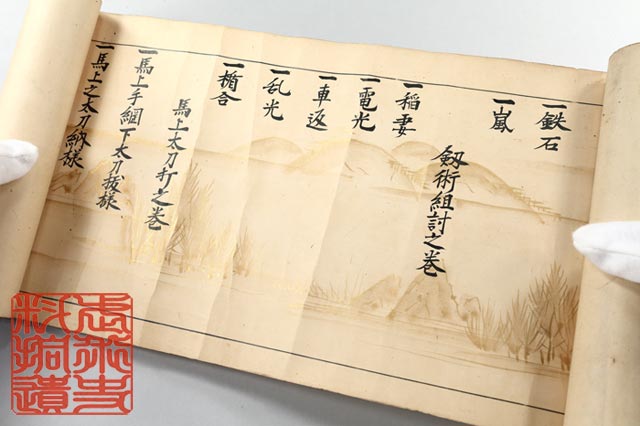 一鉄石
一嵐
釼術組討之巻
一稲妻
一電光
一車返
一乱光
一楯合
馬上太刀打之巻
一馬上手綱下太刀抜様
一馬上之太刀納様
武術史
料拾遺